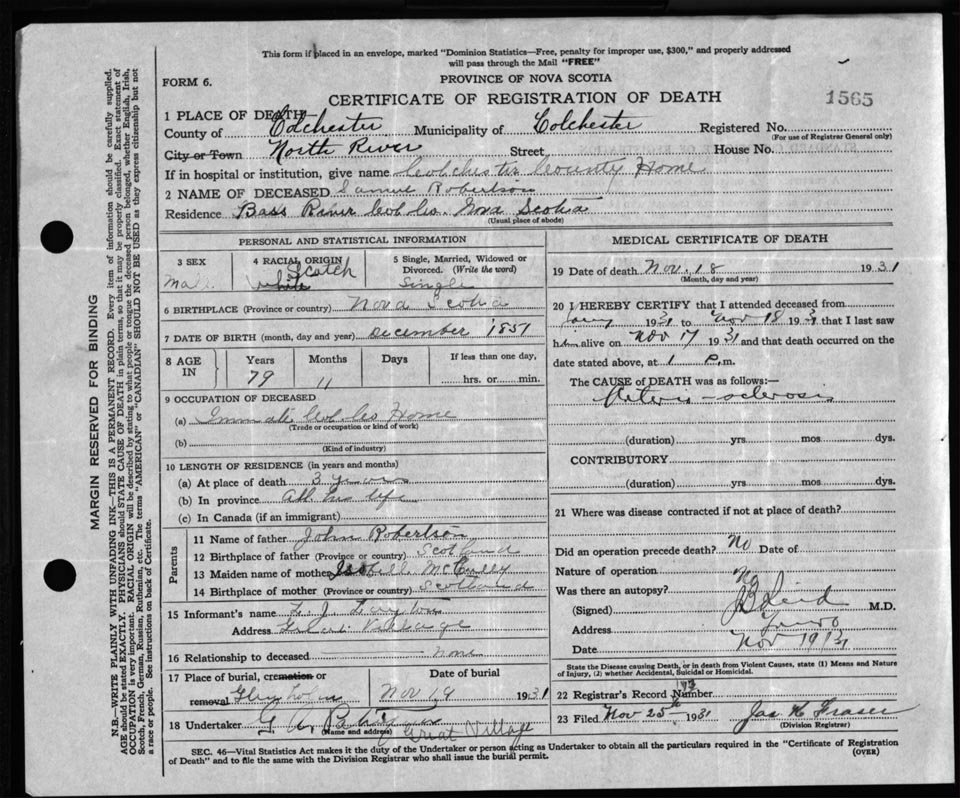 This form if placed in an envelope, marked "Dominion Statistics—Free, penalty for improper use, $300," and properly addressed
will pass through the Mail "FREE"
FORM 6.
PROVINCE OF NOVA SCOTIA
CERTIFICATE OF REGISTRATION OF DEATH
1565
1 PLACE OF DEATH
County of Colchester Municipality of Colchester Registered No.
(For use of Registrar General only)
City or Town North River Street House No.
If in hospital or institution, give name Colchester County Home
2 NAME OF DECEASED Samuel Robertson
Residence Bass River Col. Co. Nova Scotia
(Usual place of abode)
PERSONAL AND STATISTICAL INFORMATION
3 SEX 4 RACIAL ORIGIN 5 Single, Married, Widowed or
Divorced. (Write the word)
Male white Scotch Single
6 BIRTHPLACE (Province or country) Nova Scotia
7 DATE OF BIRTH (month, day and year) December 1851
8 AGE IN Years Months Days If less than one day,
79 11 hrs. or min.
9 OCCUPATION OF DECEASED
(a) Inmate Col. Co Home
(Trade or occupation or kind of work)
(b)
(Kind of industry)
10 LENGTH OF RESIDENCE (in years and months)
(a) At place of death 3 years
(b) In province all his life
(c) In Canada (if an immigrant)
Parents
11 Name of father John Robertson
12 Birthplace of father (Province or country) Scotland
13 Maiden name of mother
14 Birthplace of mother (Province or country) Scotland
15 Informant's name
Address Great Village
16 Relationship to deceased none
17 Place of burial, cremation or Date of burial
removal Glenholme Nov 19 1931
18 Undertaker G A
(Name and address) Great Village
MEDICAL CERTIFICATE OF DEATH
19 Date of death Nov. 18 1931
(Month, day and year)
20 I HEREBY CERTIFY that I attended deceased from
1931 to Nov 18 1931 that I last saw
him alive on Nov 17 1931 and that death occurred on the
date stated above, at 1 P.m.
The CAUSE OF DEATH was as follows:—
Arterio-sclerosis
(duration) yrs. mos. dys.
CONTRIBUTORY
(duration) yrs. mos. dys.
21 Where was disease contracted if not at place of death?
Did an operation precede death? No Date of
Nature of operation
Was there an autopsy? No
(Signed) Reid M.D.
Address Truro
Date Nov 19/31
State the Disease causing Death, or in death from Violent Causes, state (1) Means and Nature
of Injury, (2) whether Accidental, Suicidal or Homicidal.
22 Registrar's Record Number
23 Filed Nov 25th 1931 Jas H Fraser
(Division Registrar)
SEC. 46—Vital Statistics Act makes it the duty of the Undertaker or person acting as Undertaker to obtain all the particulars required in the "Certificate of Registration
of Death" and to file the same with the Division Registrar who shall issue the burial permit.
(OVER)
MARGIN RESERVED FOR BINDING
N.B.—WRITE PLAINLY WITH UNFADING INK—THIS IS A PERMANENT RECORD. Every item of information should be carefully supplied.
AGE should be stated EXACTLY. PHYSICIANS should STATE CAUSE OF DEATH in plain terms, so that it may be properly classified. Exact statement of
OCCUPATION is very important. RACIAL ORIGIN will be described by stating to what people or tongue the deceased person belonged, whether English, Irish,
Scotch, French, German, Russian, Ruthenian, etc. The terms "AMERICAN" or "CANADIAN" SHOULD NOT BE USED as they express citizenship but not
a race or people. See instructions on back of Certificate.